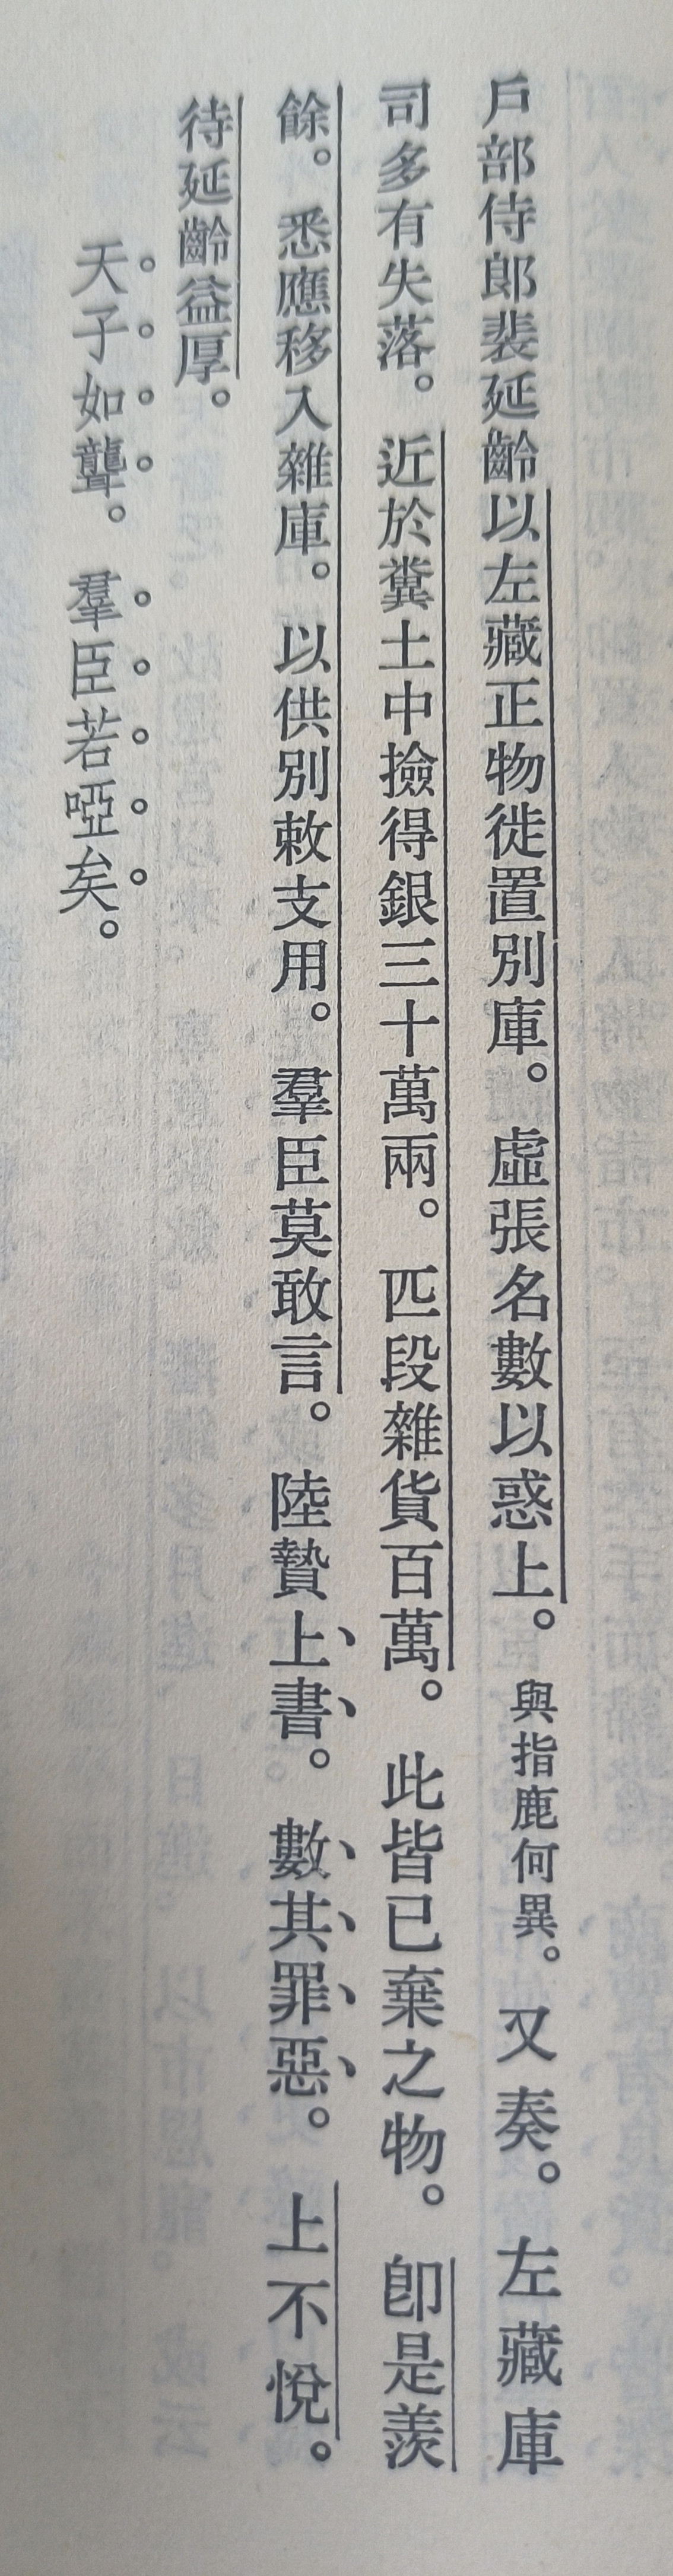 戶部侍郎裴延齡以左藏正物徙置別庫。虛張名數以惑上。與指鹿何異。又奏。左藏庫
司多有失落。近於糞土中撿得銀三十萬兩。匹段雜貨百萬。此皆已棄之物。卽是羨
餘。悉應移入雜庫。以供別敕支用。羣臣莫敢言。陸贄上書。數其罪惡。上不悅。
待延齡益厚。
天子如聾。羣臣若啞矣。